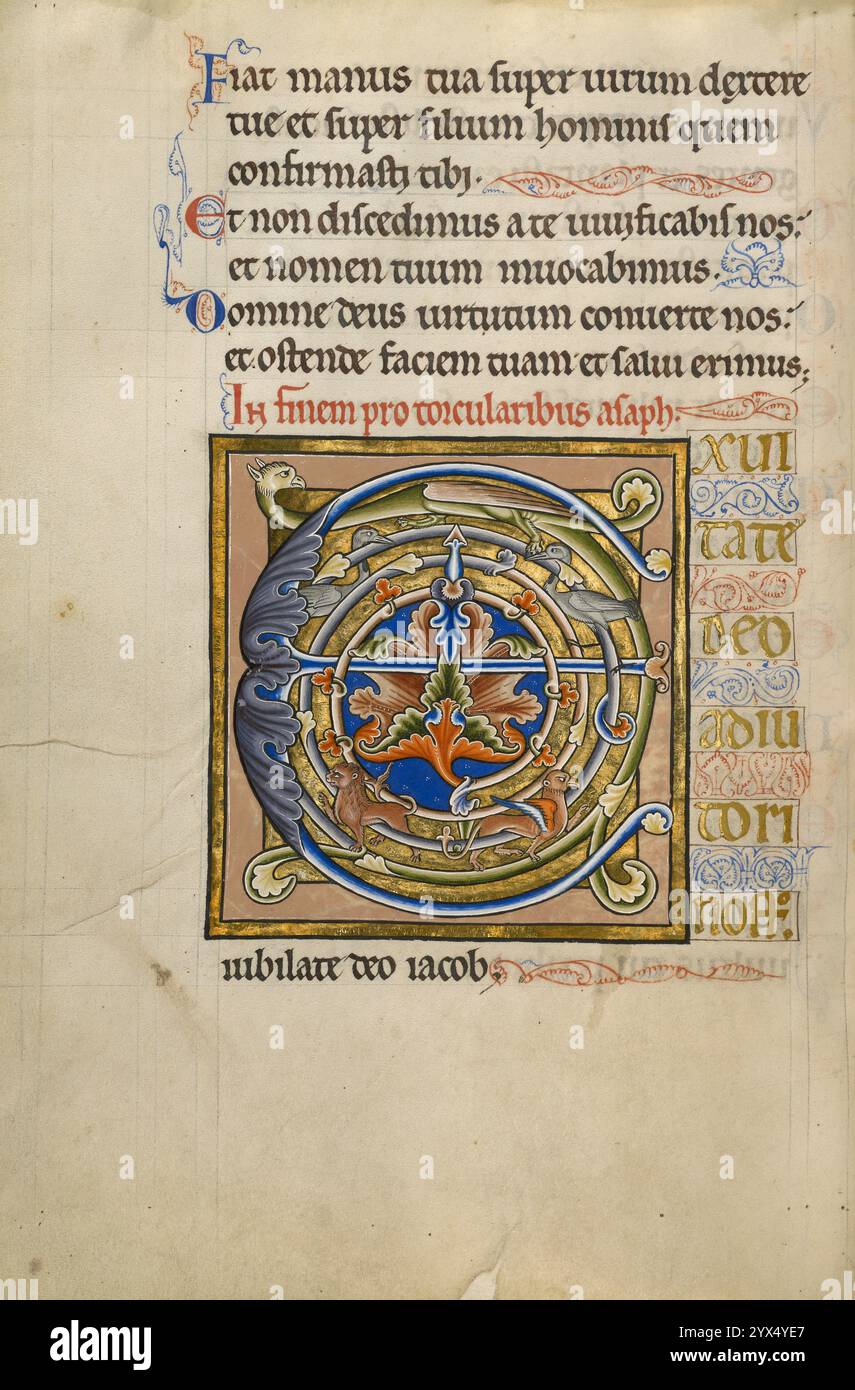 Fiat manus tua super uirum dextere
tue et super filium hominis quem
confirmasti tibi.
Et non discedimus a te uiuificabis nos:
et nomen tuum inuocabimus.
Domine deus uirtutum conuerte nos:
et ostende faciem tuam et salui erimus;
In finem pro torcularibus asaph:
EXUL
TATE
DEO
ADIU
TORI
NOSTRO:
iubilate deo iacob.
alamy
Image ID: 2YX4YE7
www.alamy.com